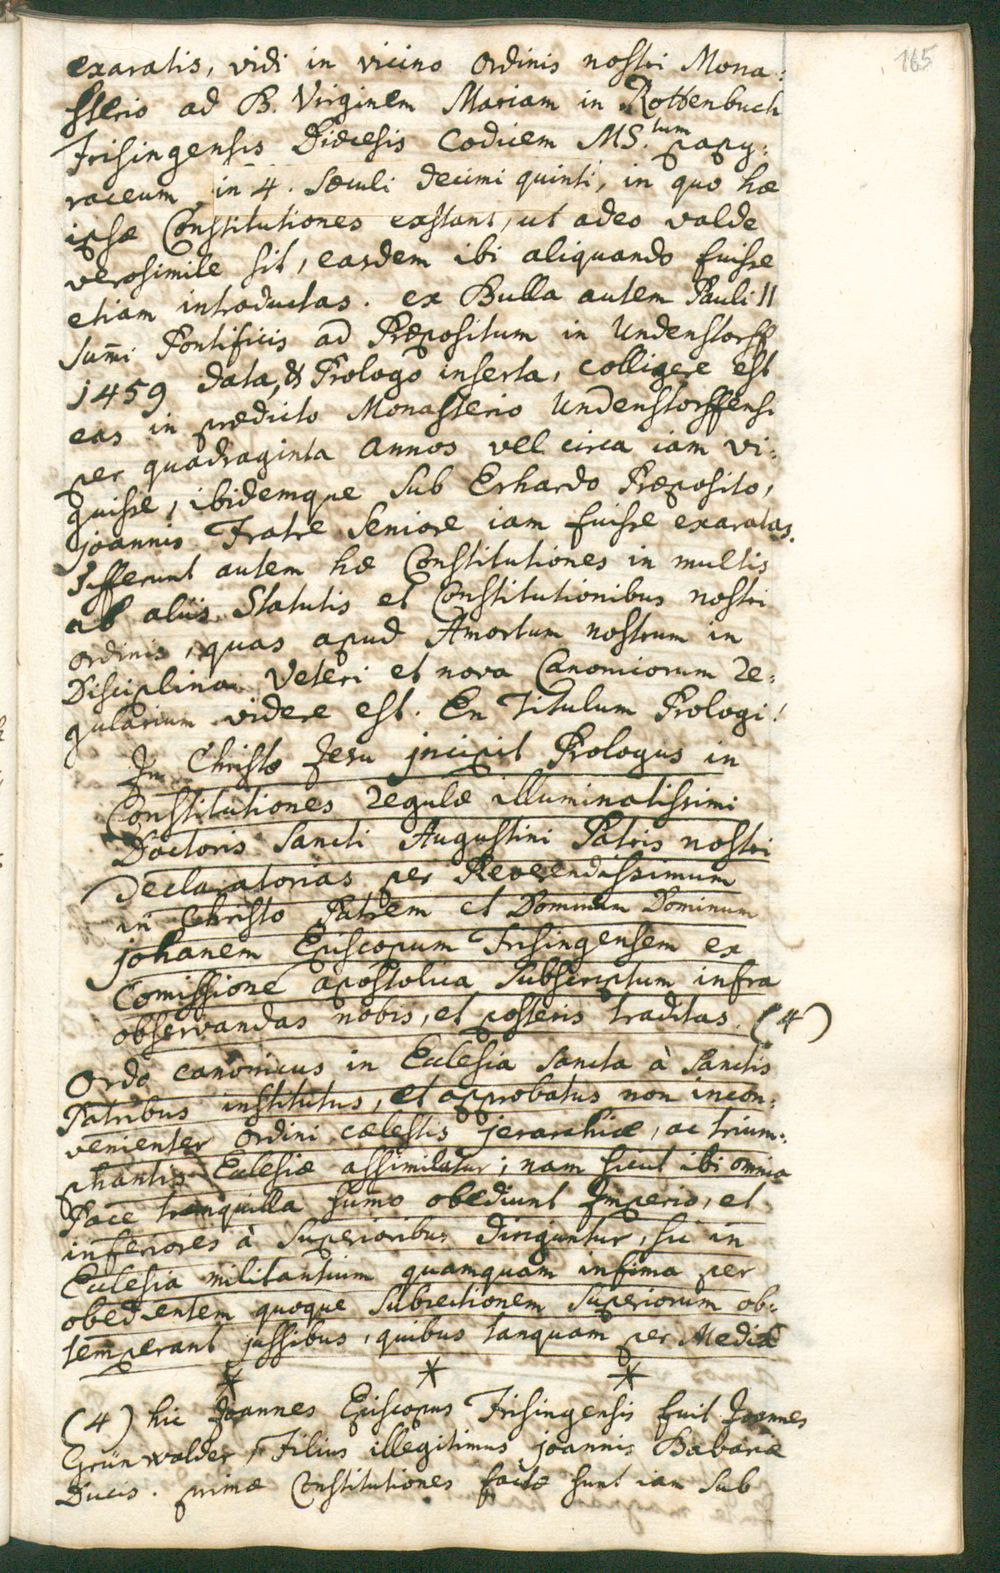 165
exaratis, vidi in vicino ordinis nostri Mona:
sterio ad B. Virginem Mariam in Rottenbuch
Frisingensis Diœcesis Codicem MS.tum papy:
raceum in 4. sæculi decimi quinti, in quo hæ
ipsæ Constitutiones exstant, ut adeo valde
verosimile sit, easdem ibi aliquando fuisse
etiam introductas. ex Bulla autem Pauli II
sum̄i Pontificis ad Præpositum in Undenstorff
1459 data, & Prologo inserta, colligere est
eas in prædicto Monasterio Undenstorffensi
per quadraginta annos vel circa iam vi:
guisse, ibidemque sub Erhardo Præposito,
joannis Fratre seniore iam fuisse exaratas.
differunt autem hæ Constitutiones in multis
ab aliis Statutis et Constitutionibus nostri
ordinis, quas apud Amortum nostrum in
Disciplina Veteri et nova Canonicorum re:
gularium videre est. En Titulum Prologi!
In Christo Jesu jncipit Prologus in
Constitutiones regulæ illuminatissimi
Doctoris Sancti Augustini Patris nostri
Declaratorias per Reverendissimum
in Christo Patrem et Dominum Dominum
johanem Episcopum Frisingensem ex
Comissione apostolica subscriptum infra
observandas nobis, et posteris traditas. (4)
Ordo canonicus in Ecclesia sancta à sanctis
Patribus institutus, et approbatus non incon:
venienter ordini cælestis jerarchiæ, ac trium:
phantis Eclesiæ assimilatur; nam sicut ibi omnia
Pace tranquilla sum̄o obediunt Imperio, et
inferiores à superioribus diriguntur, sic in
Ecclesia militantium quamquam infima per
obedientem quoque subiectionem superiorum ob:
temperant jussibus, quibus tanquam per Mediā
* * *
(4) hic Joannes Episcopus Frisingensis fuit Joannes
Grünwalder, Filius illegitimus joannis Bavariæ
Ducis. primæ Constitutiones factæ sunt iam sub